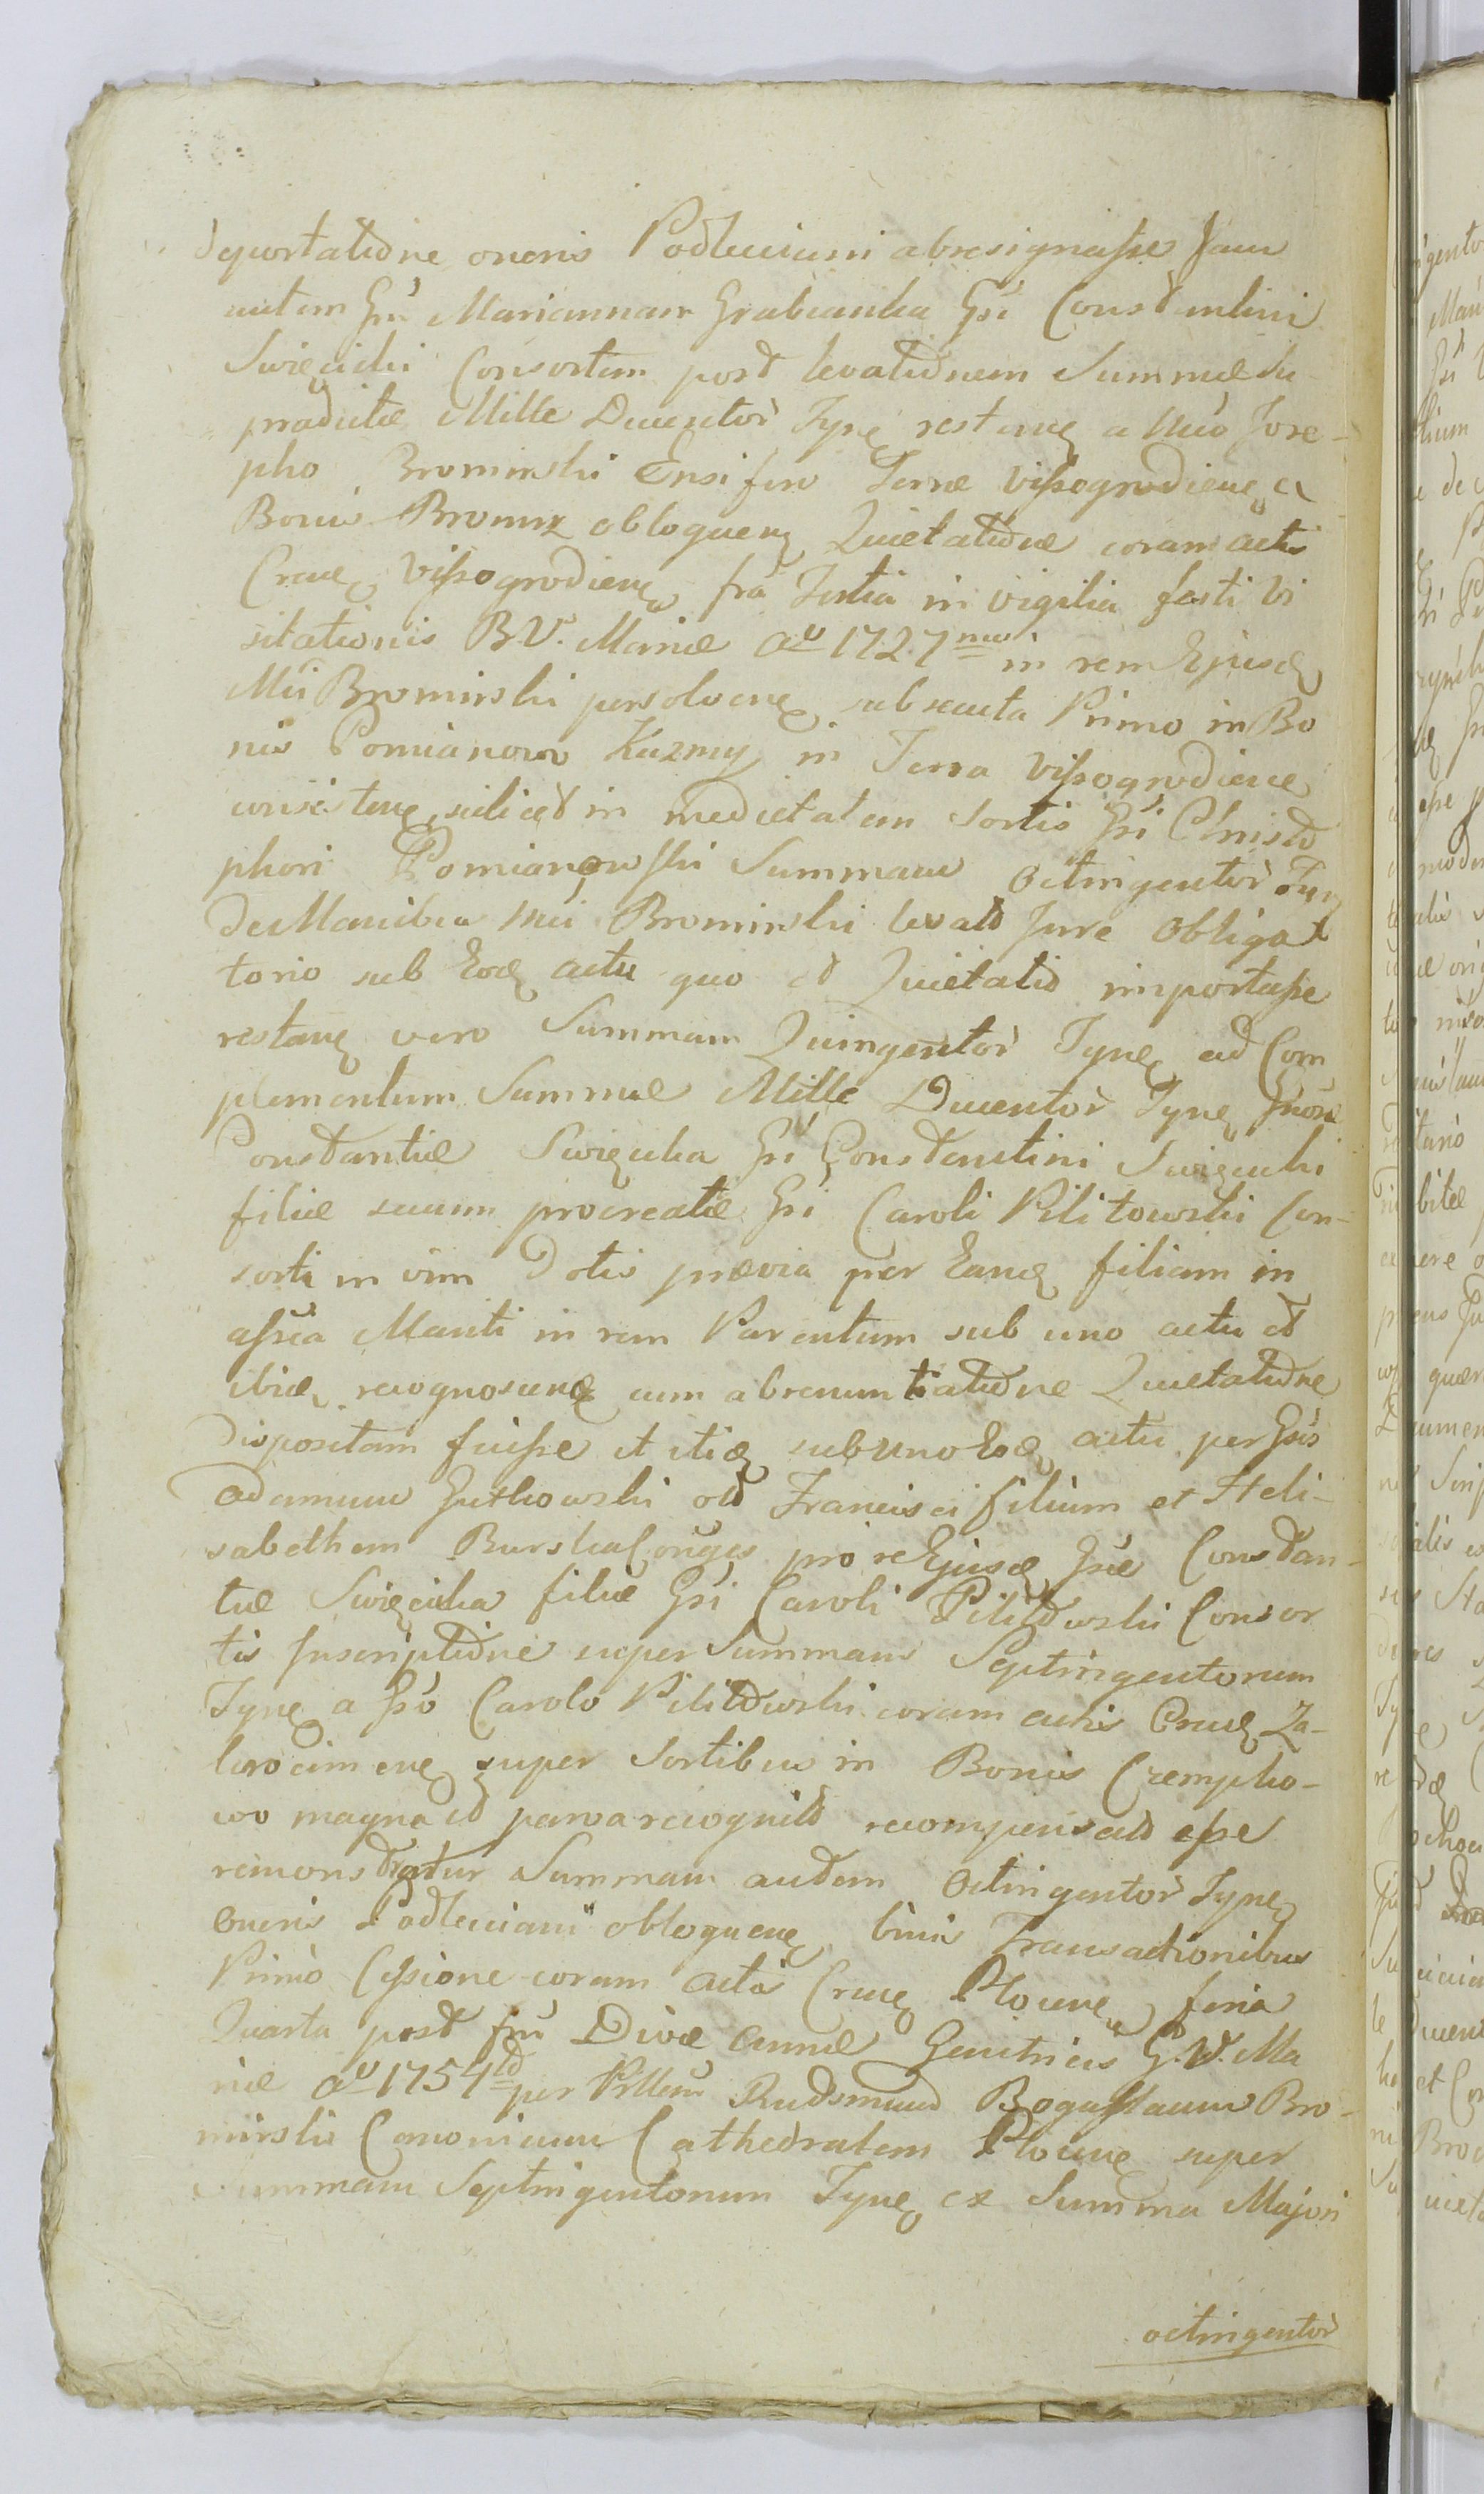 deportatione oneris Podleiciani abresignasse Jam
autem Gm̃ Mariannam Grabianka Gsi Constantini
Swięcicki Consortem post levationem Summæ Su-
pradictæ Mille Ducentor̀ Tynꝫ restanꝫ a Mco Jose-
pho Bromirski Ensifero Terræ Vissogrodienꝫ a
Bonis Bromirz obloquenꝫ Quietatione coram actis
Crenꝫ Vissogrodienꝫ fra Tertia in vigilia festi Vi
sitationis B.V. Mariæ Aº 1727mo in rem Ejusdꝫ
Mci Bromirski persolvenꝫ subsecuta Primo in Bo
nis Pomianowo Kuzmy in Terra Vissogrodiene
consistenꝫ scilicet in medietatem Sortis Gsi Christo
phori Pomianowski Summam Octingentor̀ Tyn
de Manibus Mci Bromirski levato Jure Obliga
torio sub Eodꝫ actu quo et Quietatio importasse
restanꝫ vero Summam Quingentor̀ Tynꝫ ad Com
plementum Summæ Mille Ducentor̀ Tynꝫ
Constantiæ Swięcicka Gsi Constantini Swięcicki
filiæ secum procreatæ Gsi Caroli Pilitowski Con-
sorti in vim Dotis prævia per Eandꝫ filiam in
assɑ̃ Mariti in rem Parentum sub uno actu et
ibidꝫ recognoscendꝫ cum abrenuntiatione Quietatione
dispositam fuisse et itidꝫ sub uno Eodꝫ actu per Gsɔs
Adamum Gutkowski olɔ Francisci filium et Heli-
sabetham Burska Conjuges pro re Ejusdꝫ Gsæ Constan-
tiæ Swięcicka filiæ Gsi Caroli Pilitowski Consor
tis Inscriptione super Summam Septingentorum
Tynꝫ a Gso Carolo Pilitowski coram actis Crenꝫ Za-
krocimenꝫ super Sortibus in Bonis Czempko-
wo magna et parva recognito recompensato esse
remonstratur Summam autem Octingentor̀ Tynꝫ
Oneris Podleiciani obloquenꝫ binis Transactionibus
Primo Cessione coram actis Crenꝫ Plocenꝫ feria
Quarta post fm̃ Divæ Annæ Genitricis G.V. Ma
riæ Aº 1754to per Rudsmund Bogusłaum Bro-
mirski Canonicum Cathedralem Plocenꝫ super
Summam Septingentorum Tynꝫ ex Summa Majori
octingentor̀